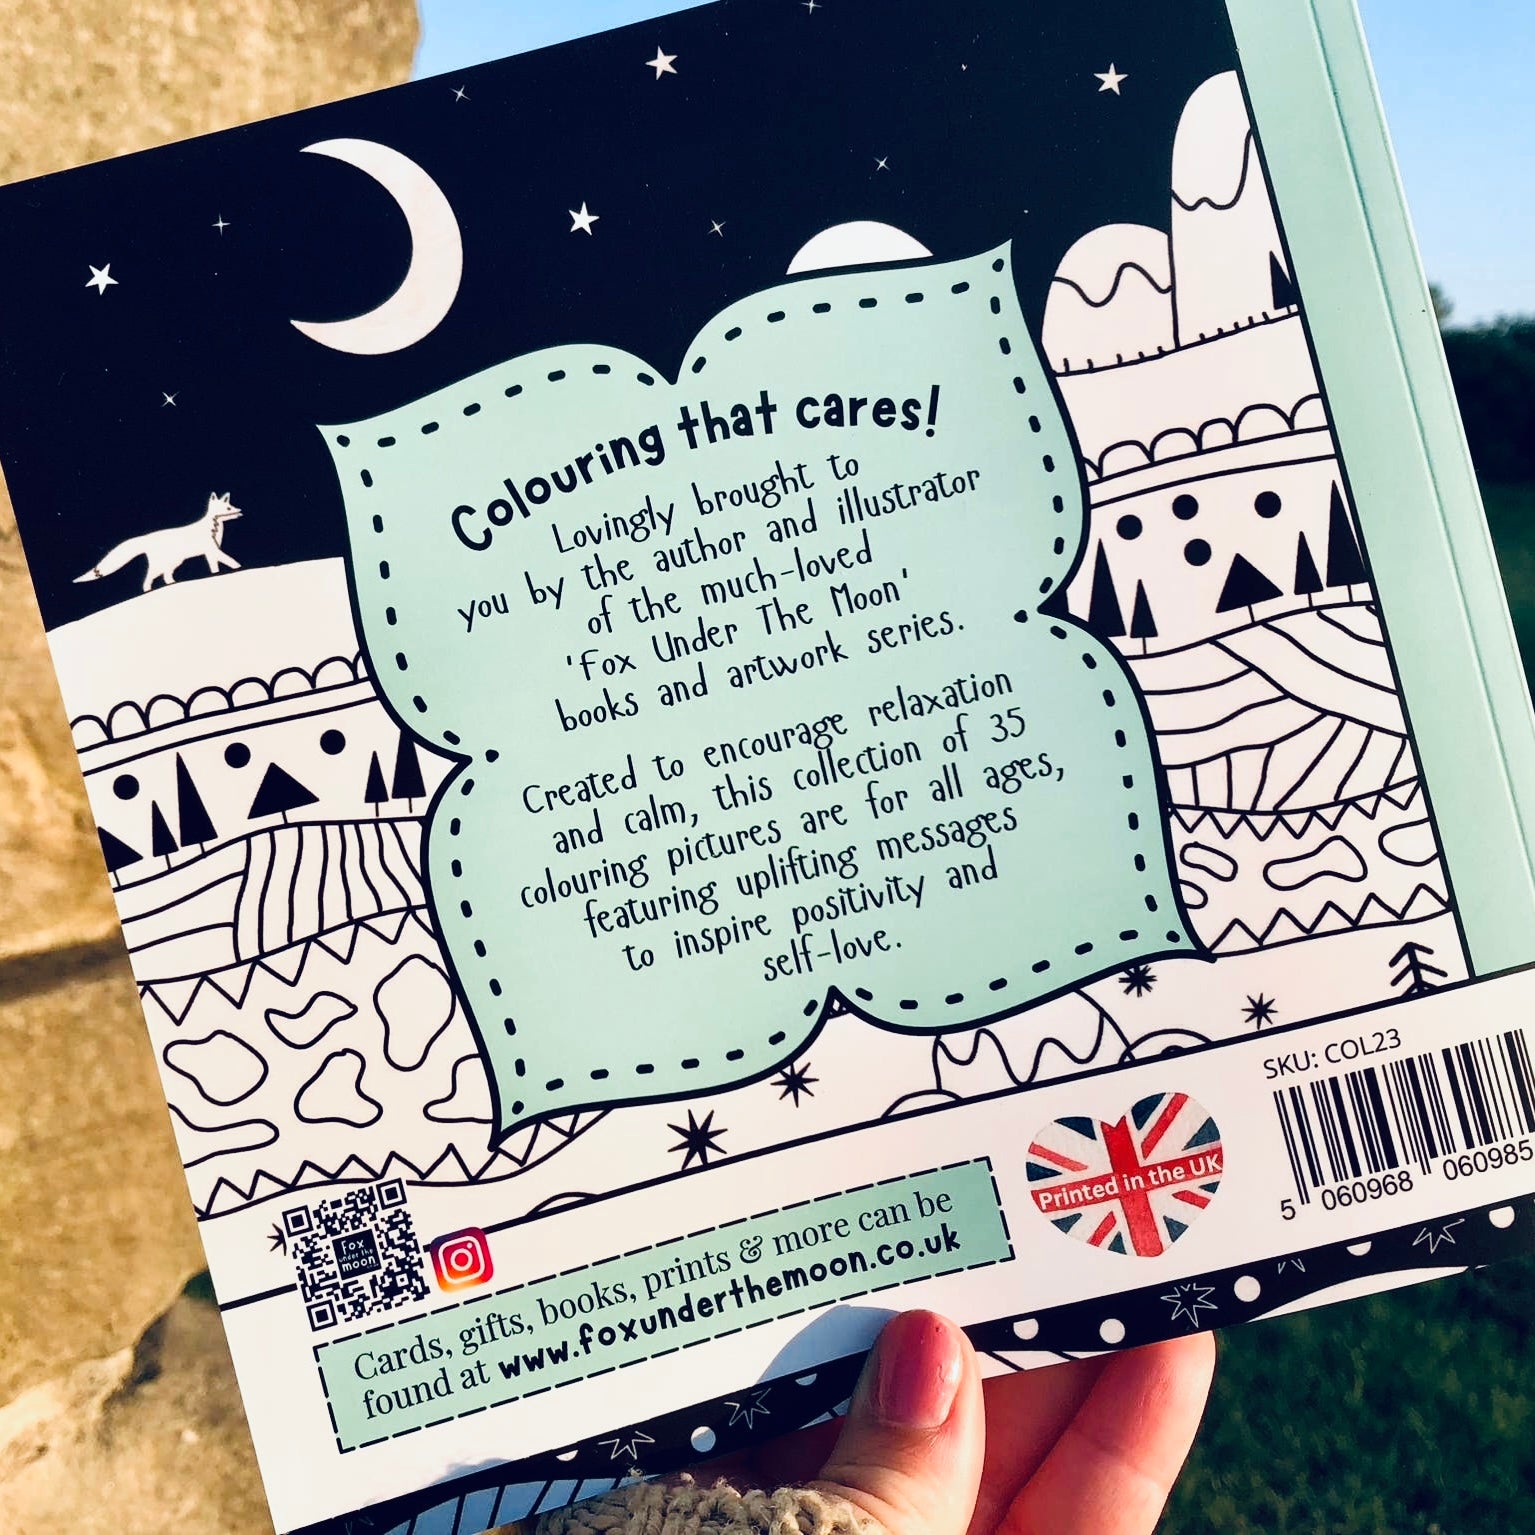 Colouring that cares!
Lovingly brought to
you by the author and illustrator
of the much-loved
'Fox Under The Moon'
books and artwork series.
Created to encourage relaxation
and calm, this collection of 35
colouring pictures are for all ages,
featuring uplifting messages
to inspire positivity and
self-love.
SKU: COL23
5 060968 060985
Printed in the UK
Fox
under the
moon
Cards, gifts, books, prints & more can be
found at www.foxunderthemoon.co.uk